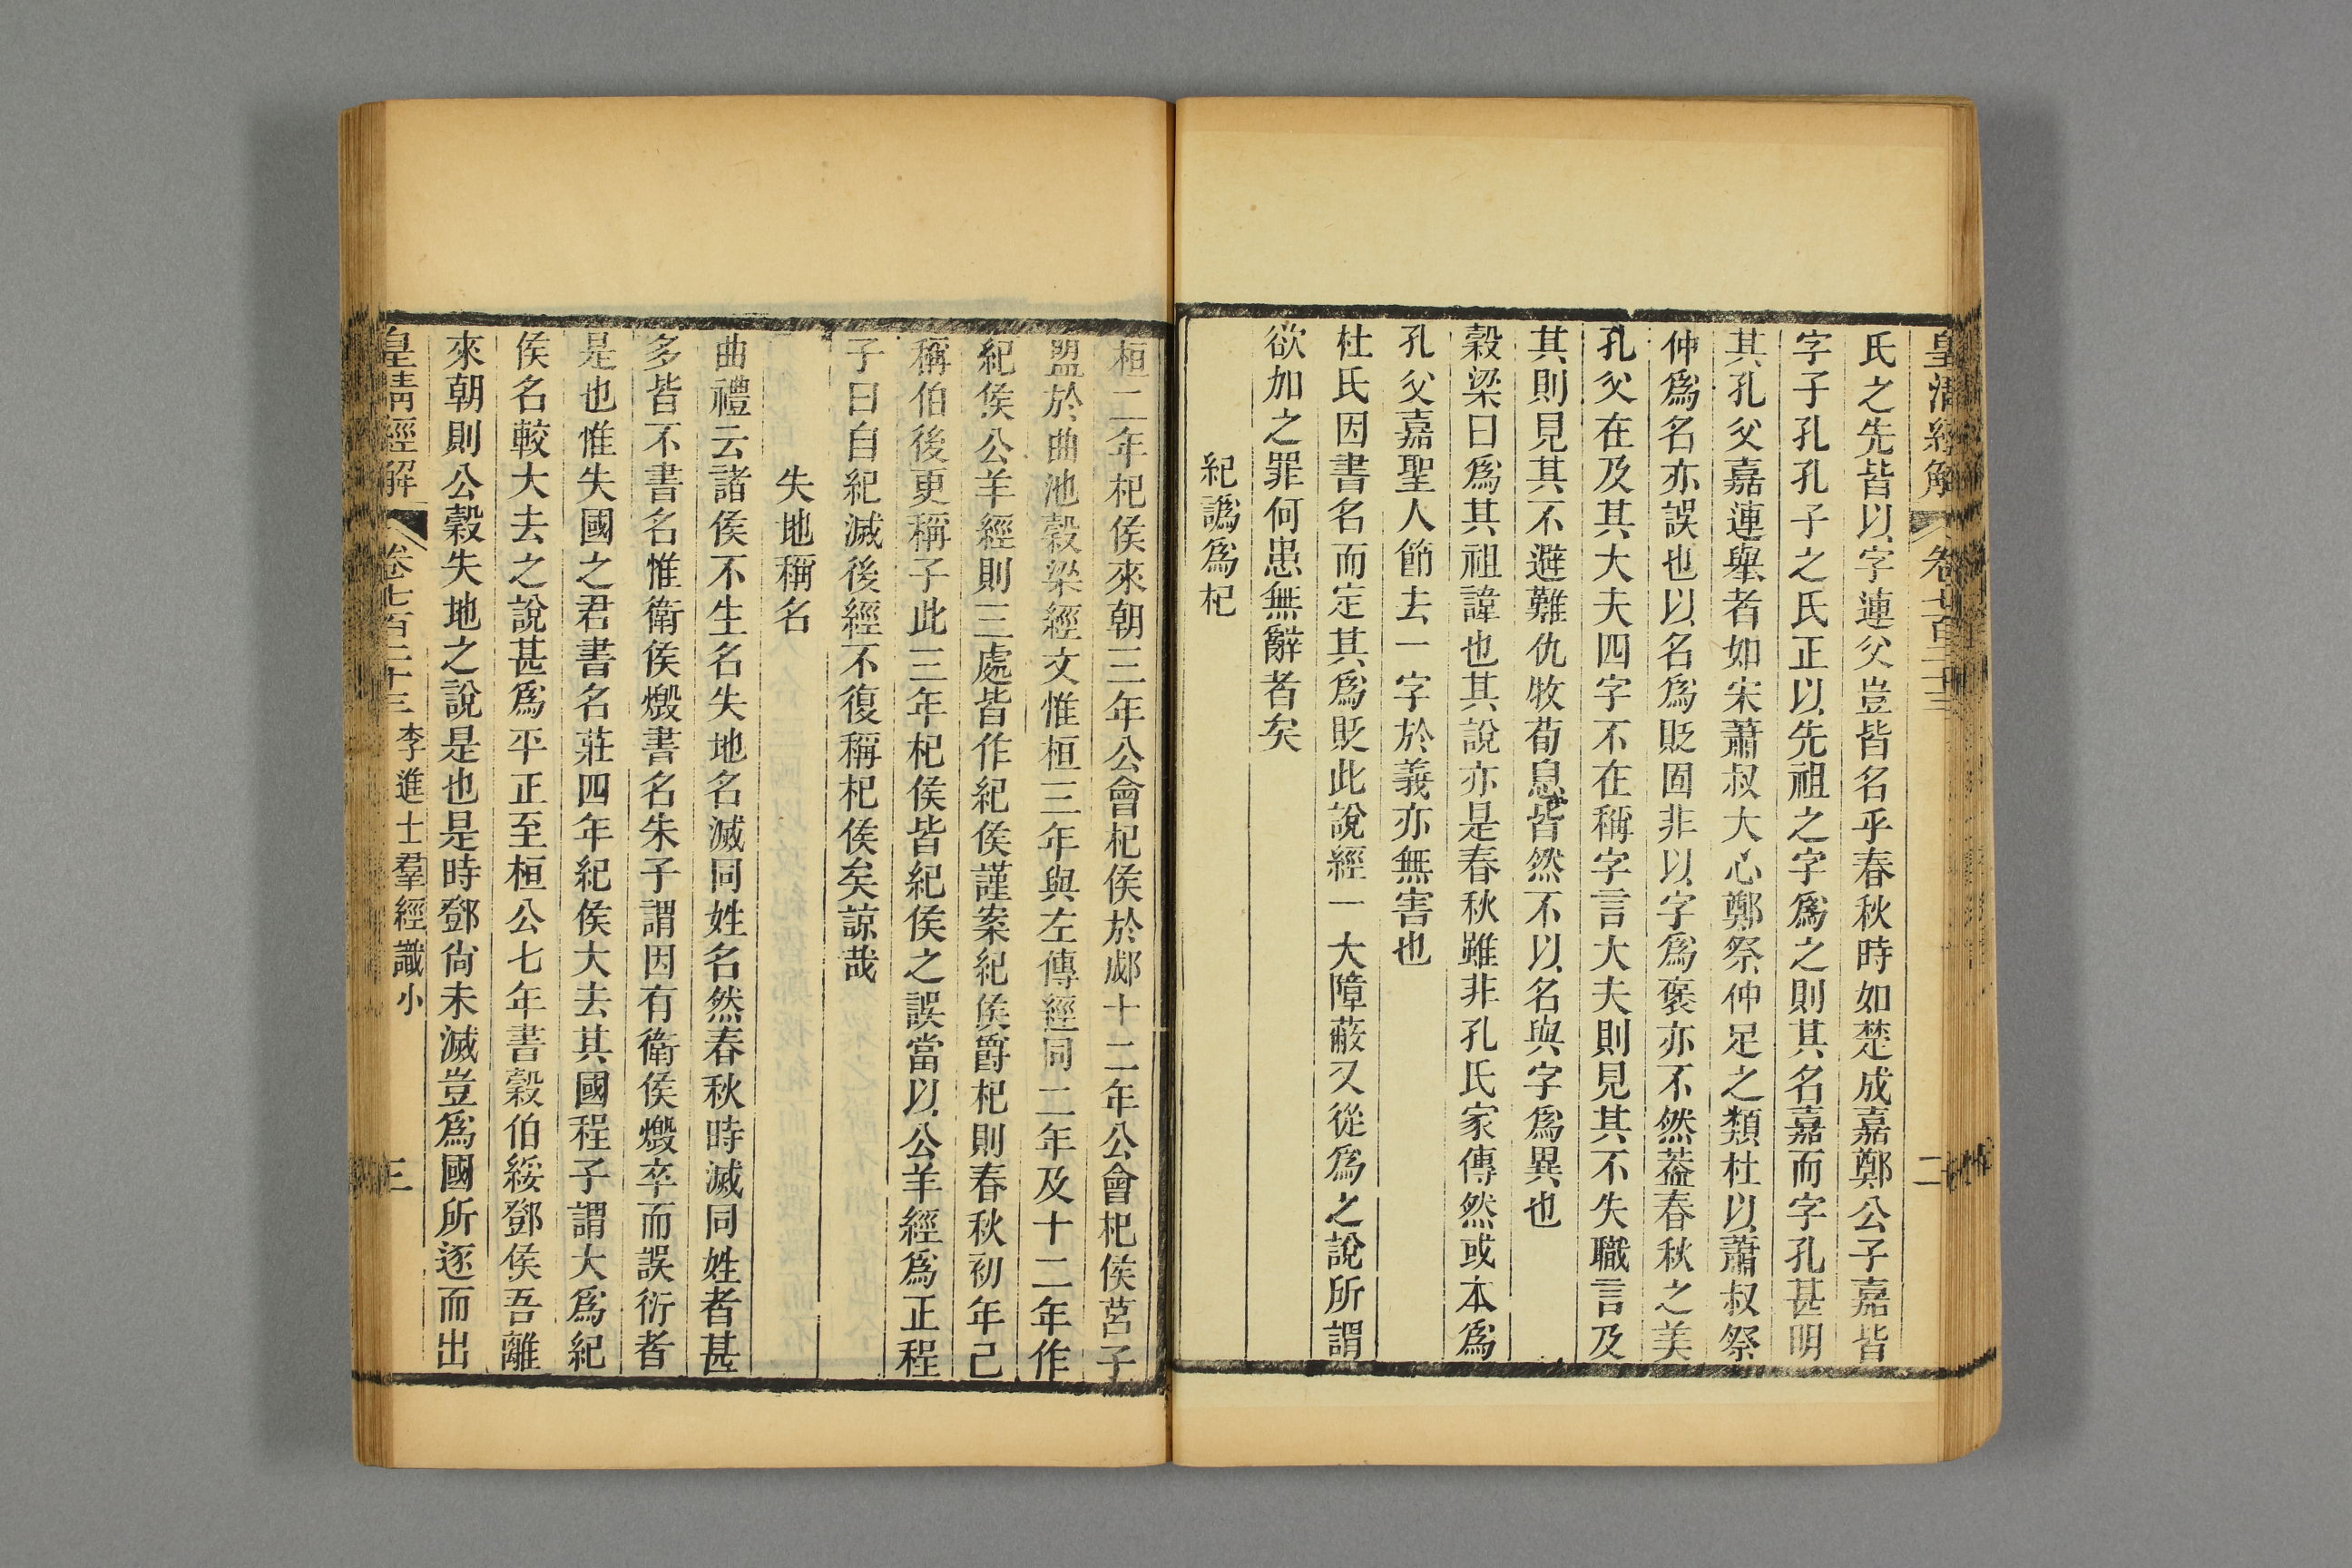 皇清經解 卷七百二十三 二
氏之先皆以字連父豈皆名乎春秋時如楚成嘉鄭公子嘉皆
字子孔孔子之氏正以先祖之字爲之則其名嘉而字孔甚明
其孔父嘉連舉者如宋蕭叔大心鄭祭仲足之類杜以蕭叔祭
仲爲名亦誤也以名爲貶固非以字爲褒亦不然蓋春秋之美
孔父在及其大夫四字不在稱字言大夫則見其不失職言及
其則見其不避難仇牧荀息皆然不以名與字爲異也
穀梁曰爲其祖諱也其說亦是春秋雖非孔氏家傳然或本爲
孔父嘉聖人節去一字於義亦無害也
杜氏因書名而定其爲貶此說經一大障蔽又從爲之說所謂
欲加之罪何患無辭者矣
紀譌爲杞
桓二年杞侯來朝三年公會杞侯於郕十二年公會杞侯莒子
盟於曲池穀梁經文惟桓三年與左傳經同二年及十二年作
紀侯公羊經則三處皆作紀侯謹案紀侯爵杞則春秋初年已
稱伯後更稱子此三年杞侯皆紀侯之誤當以公羊經爲正程
子曰自紀滅後經不復稱杞侯矣諒哉
失地稱名
曲禮云諸侯不生名失地名滅同姓名然春秋時滅同姓者甚
多皆不書名惟衛侯燬書名朱子謂因有衛侯燬卒而誤衍者
是也惟失國之君書名莊四年紀侯大去其國程子謂大爲紀
侯名較大去之說甚爲平正至桓公七年書穀伯綏鄧侯吾離
來朝則公穀失地之說是也是時鄧尙未滅豈爲國所逐而出
皇淸經解 卷七百二十三 李進士羣經識小 三